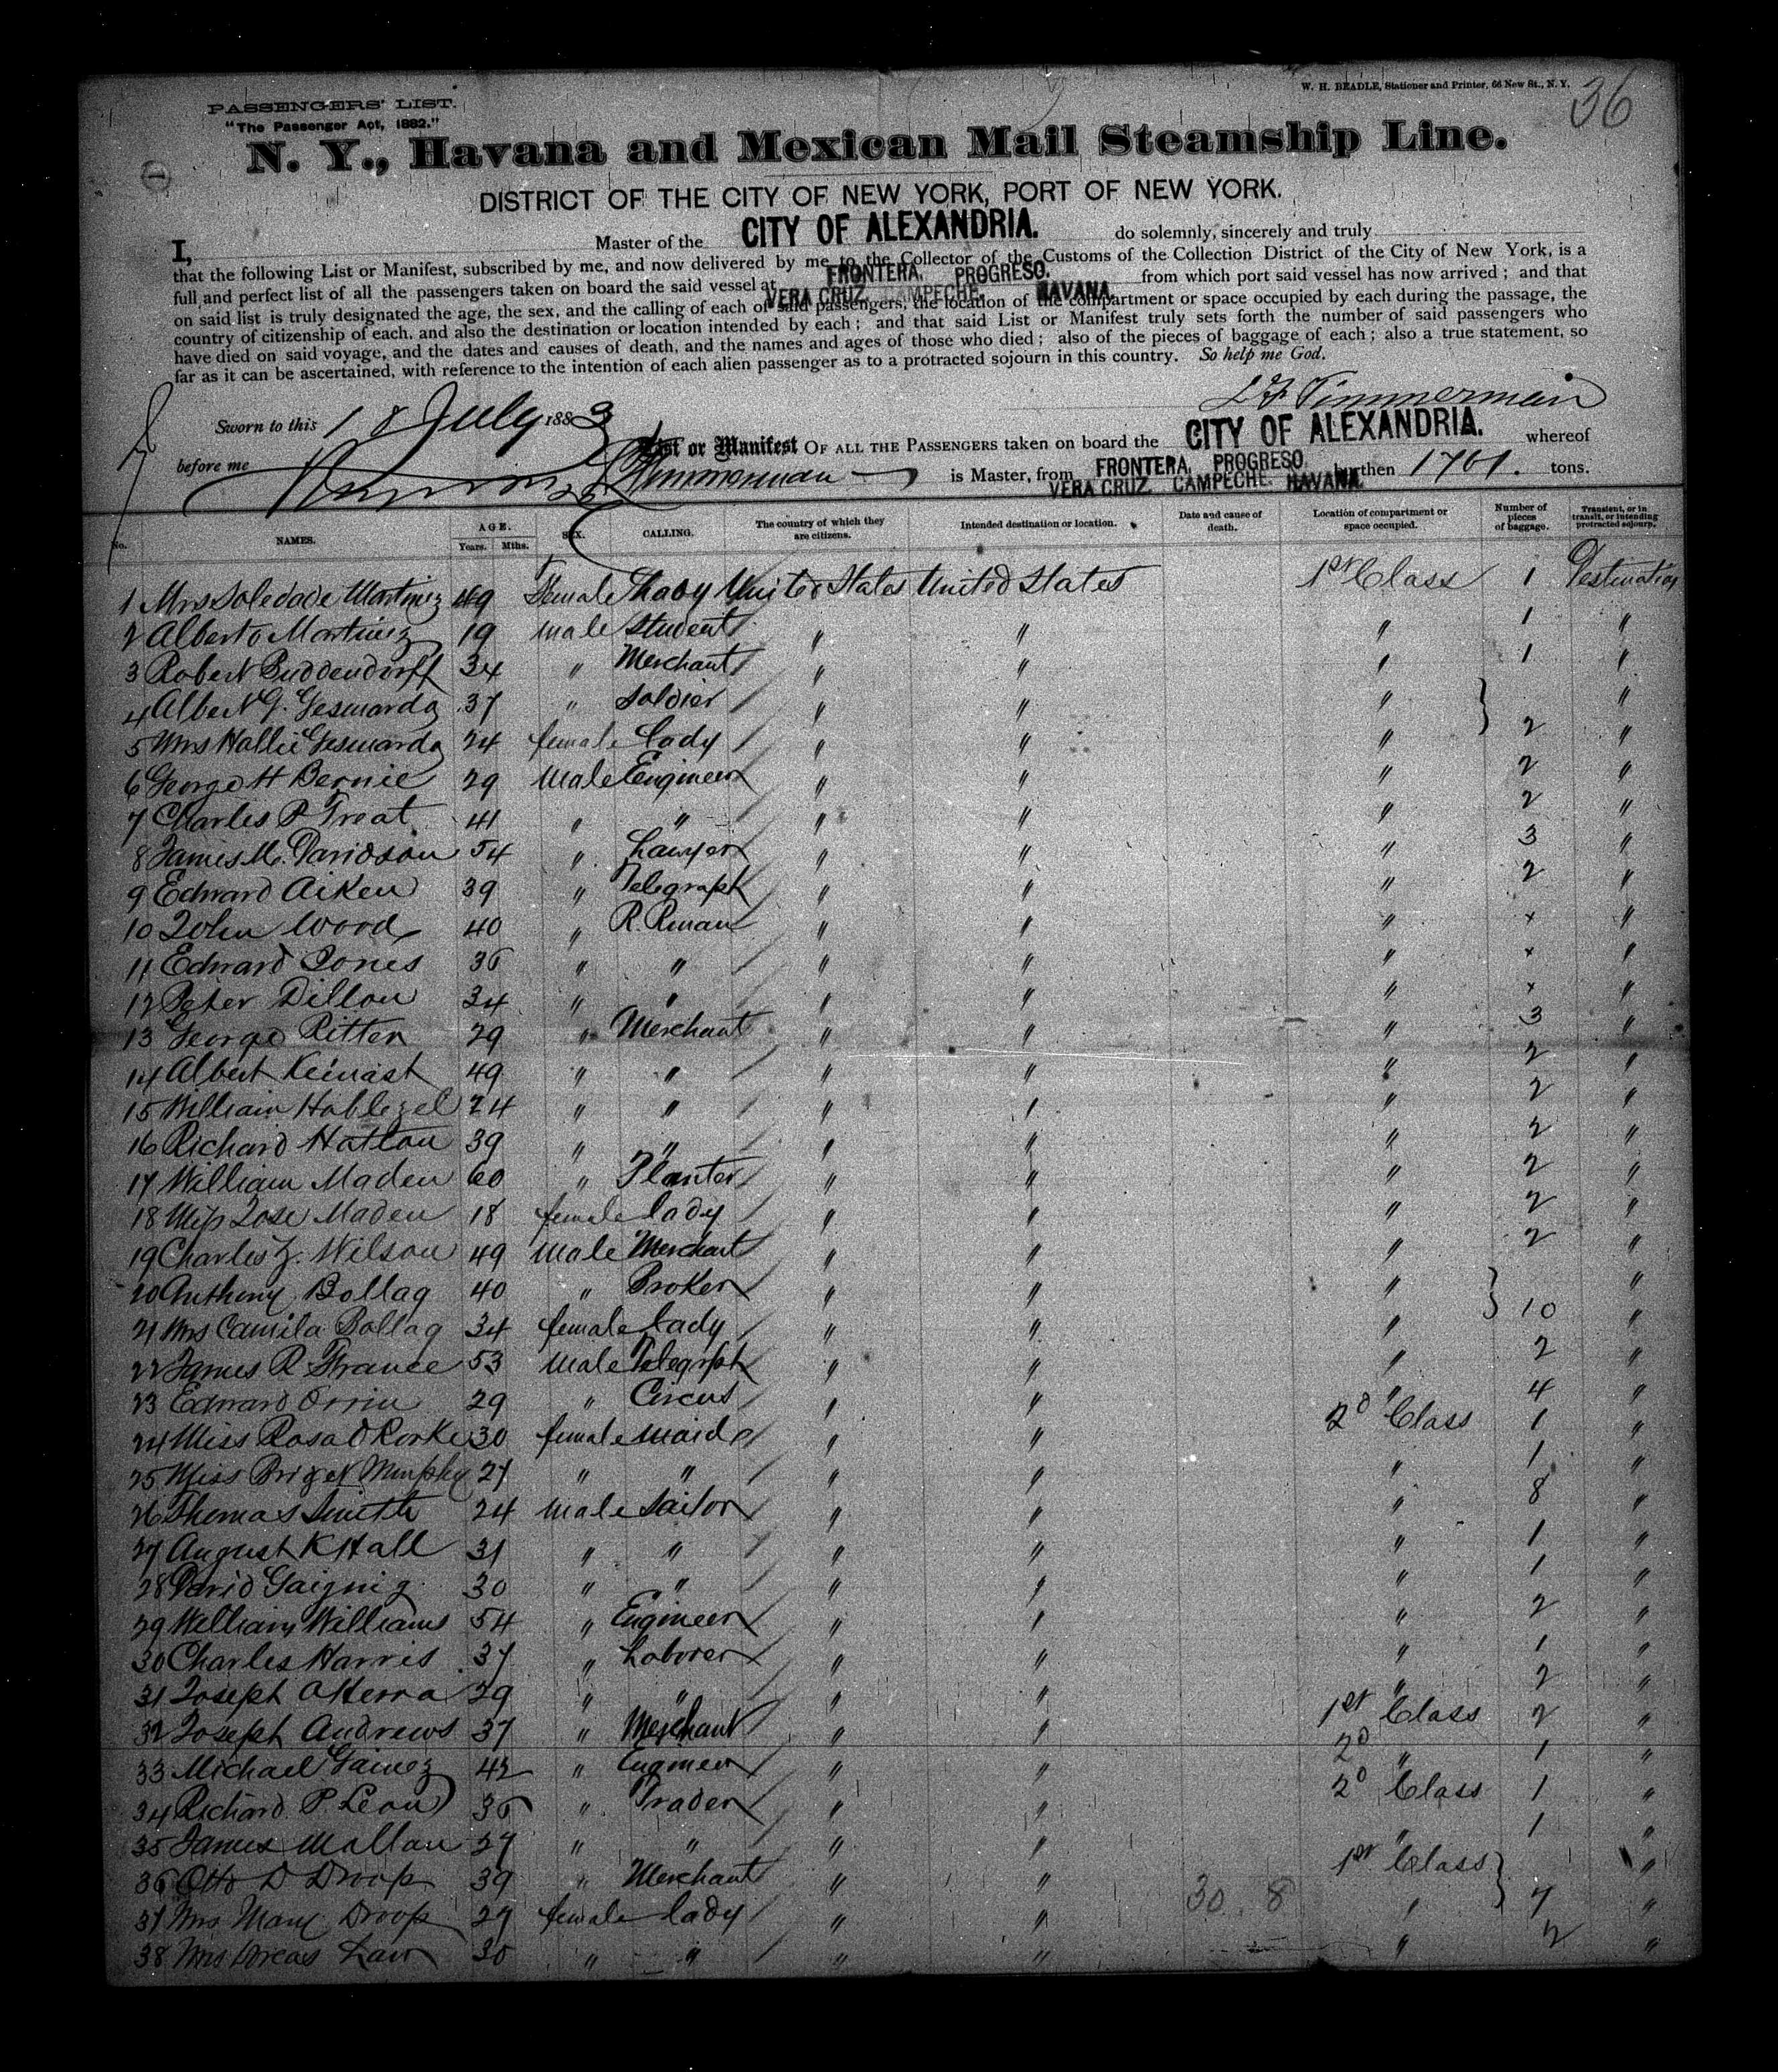 36
W. H. BEADLE, Stationer and Printer, 66 New St., N. Y.
PASSENGERS' LIST.
"The Passenger Act, 1882."
N. Y., Havana and Mexican Mail Steamship Line.
DISTRICT OF THE CITY OF NEW YORK, PORT OF NEW YORK.
I, Master of the CITY OF ALEXANDRIA. do solemnly, sincerely and truly
that the following List or Manifest, subscribed by me, and now delivered by me to the Collector of the Customs of the Collection District of the City of New York, is a
full and perfect list of all the passengers taken on board the said vessel at FRONTERA, PROGRESO. VERA CRUZ, CAMPECHE, HAVANA from which port said vessel has now arrived; and that
on said list is truly designated the age, the sex, and the calling of each of said passengers, the location of the compartment or space occupied by each during the passage, the
country of citizenship of each, and also the destination or location intended by each; and that said List or Manifest truly sets forth the number of said passengers who
have died on said voyage, and the dates and causes of death, and the names and ages of those who died; also of the pieces of baggage of each; also a true statement, so
far as it can be ascertained, with reference to the intention of each alien passenger as to a protracted sojourn in this country. So help me God.
Timmerman
Sworn to this 18 July 1883
before me
List or Manifest OF ALL THE PASSENGERS taken on board the CITY OF ALEXANDRIA. whereof
Timmerman is Master, from FRONTERA, PROGRESO VERA CRUZ, CAMPECHE. HAVANA. burthen 1701. tons.
No. NAMES. AGE. Years. Mths. SEX. CALLING. The country of which they are citizens. Intended destination or location. Date and cause of death. Location of compartment or space occupied. Number of pieces of baggage. Transient, or in transit, or intending protracted sojourn.
1 Mrs Soledade Martinez 49 Female Lady United States United States 1st Class 1 Destination
2 Alberto Martinez 19 male Student " " " 1 "
3 Robert Buddendorff 34 " Merchant " " " 1 "
4 Albert G. 37 " Soldier " " " "
5 Mrs Hallie 24 female Lady " " " 2 "
6 George H Bernie 29 Male Engineer " " " 2 "
7 Charles P Treat 41 " " " " " 2 "
8 James M. Davidson 54 " Lawyer " " " 3 "
9 Edward Aiken 39 " Telegraph " " " 2 "
10 John Wood 40 " R. Rman " " " x "
11 Edward Jones 36 " " " " " x "
12 Peter Dillon 34 " " " " " x "
13 George Ritter 29 " Merchant " " " 3 "
14 Albert Keinast 49 " " " " " 2 "
15 William Hablizel 24 " " " " " 2 "
16 Richard Hatton 39 " " " " " 2 "
17 William Maden 60 " Planter " " " 2 "
18 Miss Jose Maden 18 female lady " " " 2 "
19 Charles Z. Wilson 49 male Merchant " " " 2 "
20 Anthony Bollag 40 " Broker " " " "
21 Mrs Camila Bollag 34 female lady " " " 10 "
22 James R France 53 Male Telegrph " " " 2 "
23 Edward Orrin 29 " Circus " " " 4 "
24 Miss Rosa O Rorke 30 female maid " " 2d Class 1 "
25 Miss Briget Murphy 27 " " " " " 1 "
26 Thomas Smith 24 male Sailor " " " 8 "
27 August K Hall 31 " " " " " 1 "
28 David 30 " " " " " 1 "
29 William Williams 54 " Engineer " " " 2 "
30 Charles Harris 37 " Laborer " " " 1 "
31 Joseph 29 " " " " " 2 "
32 Joseph Andrews 37 " Merchant " " 1st Class 2 "
33 Michael Gainez 42 " Engineer " " 2d " 1 "
34 Richard P. Leon 36 " Trader " " 2d Class 1 "
35 James Mallan 27 " " " " " 1 "
36 Otto D Droop 39 " Merchant " " 1st Class "
37 Mrs Mary Droop 29 female lady " " 30 8 " 7 "
38 Mrs Dorcas Law 30 " " " " " 2 "